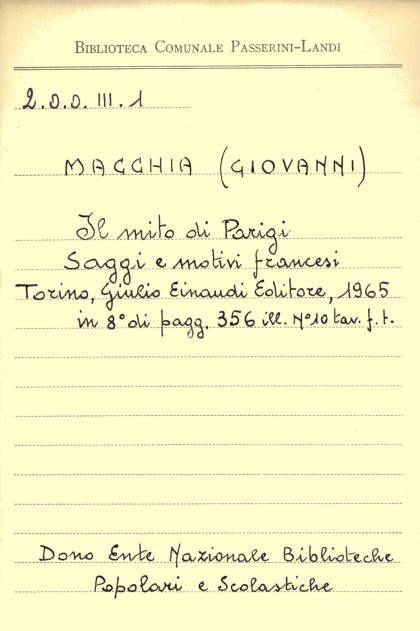 BIBLIOTECA COMUNALE PASSERINI-LANDI
2.0.0. III. 1
MACCHIA (GIOVANNI)
Il mito di Parigi
Saggi e motivi francesi
Torino, Giulio Einaudi Editore, 1965
in 8° di pagg. 356 ill. N° 10 tav. f. t.
Dono Ente Nazionale Biblioteche
Popolari e Scolastiche